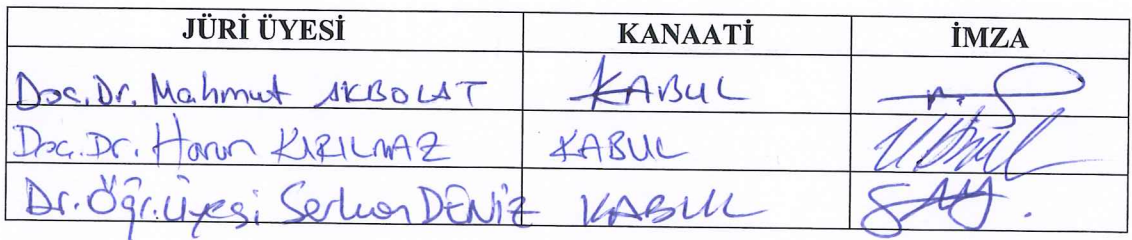 JÜRİ ÜYESİ KANAATİ İMZA
Doç. Dr. Mahmut AKBOLAT KABUL
Doç. Dr. Harun KIRILMAZ KABUL
Dr. Öğr. Üyesi Serkan DENİZ KABUL